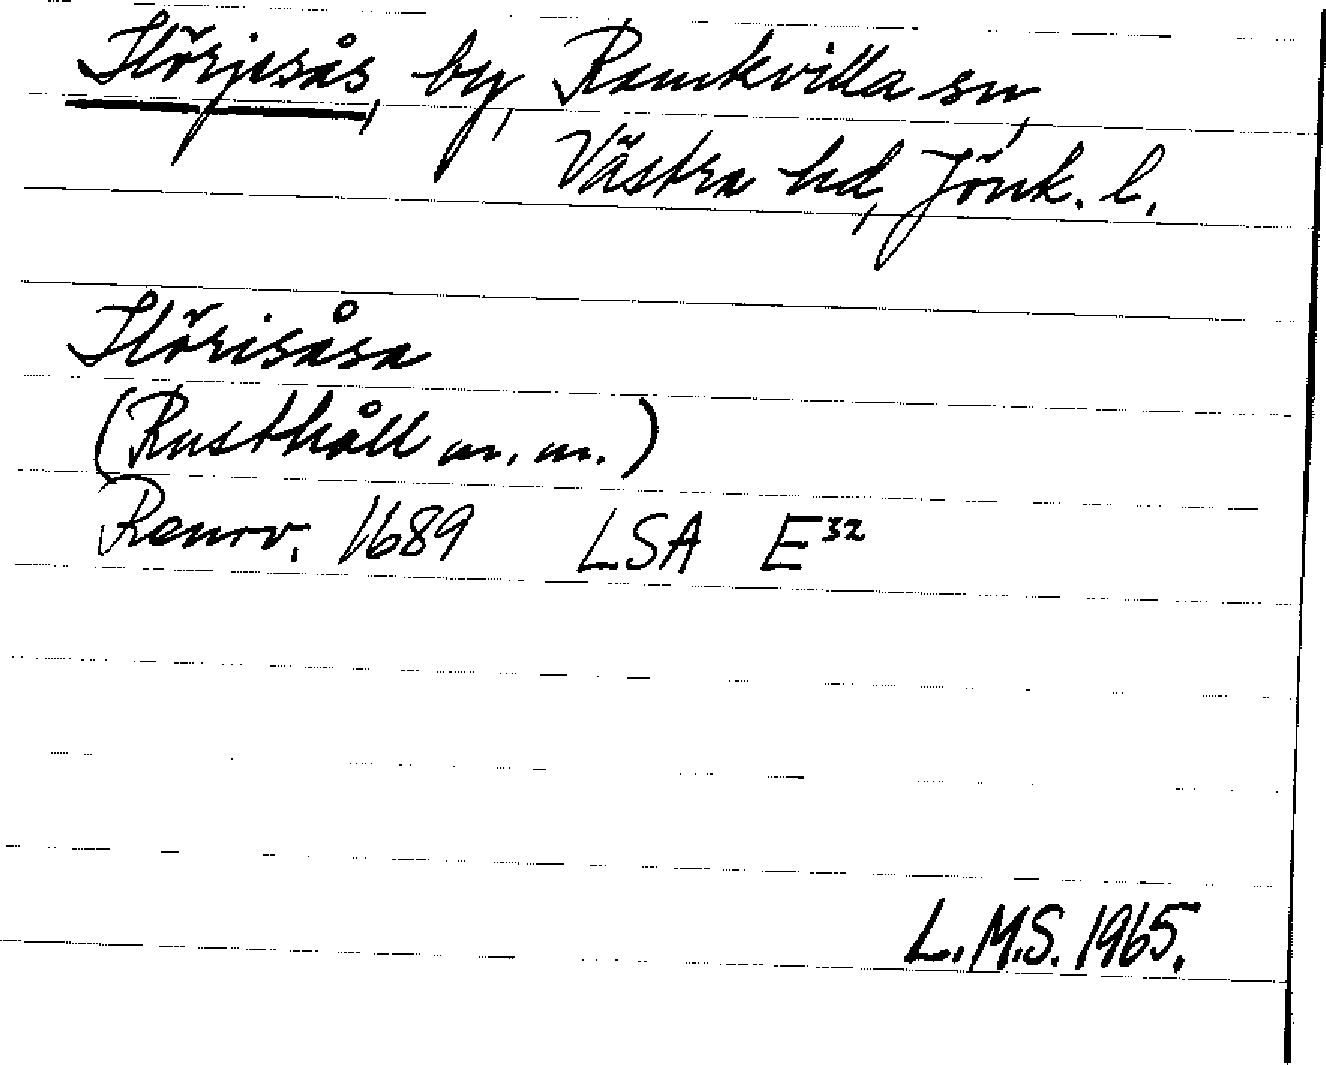 Hörjesås, by, Ramkvilla sn,
Västra hd, Jönk. l.
Hörisåsa
(Rusthåll m. m.)
Renov. 1689 LSA E32
L.M.S. 1965.